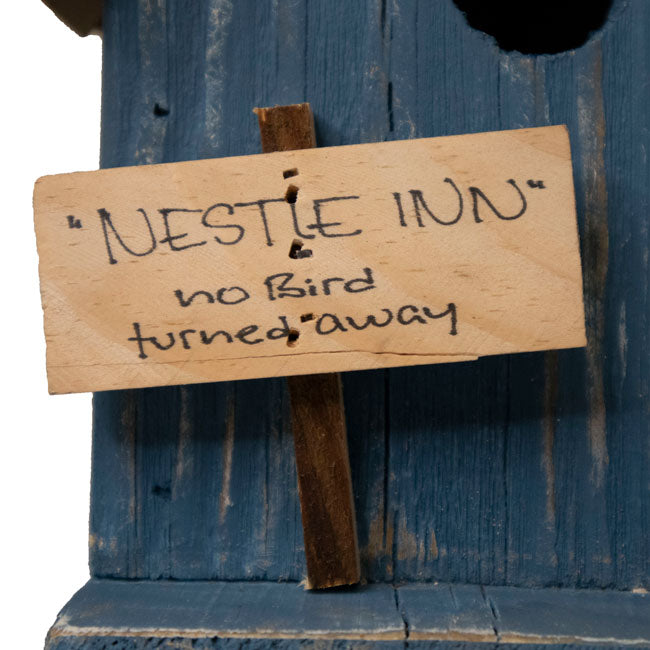 "NESTLE INN"
no Bird
turned away